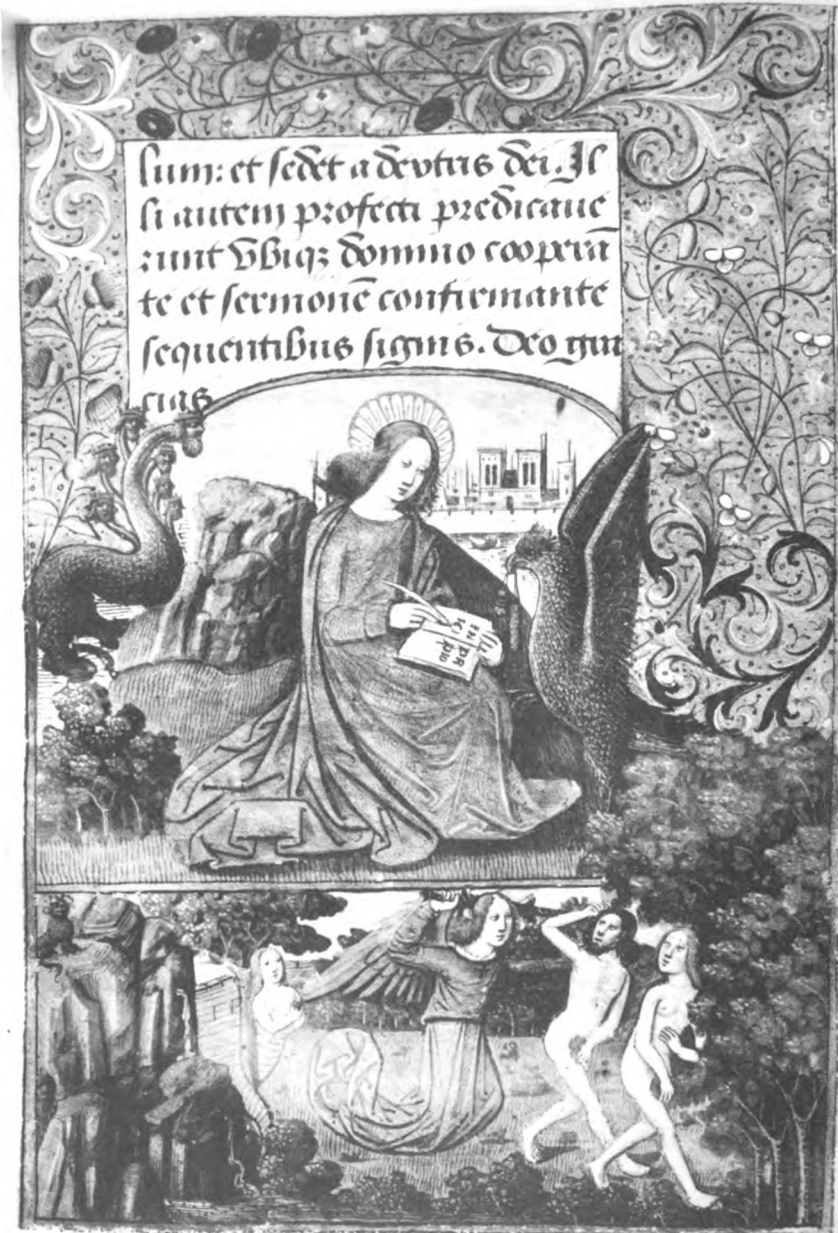 lum: et sedet a dextris dei. Il
li autem profecti predicaue
runt vbiq; domino cooperā
te et sermonē confirmante
sequentibus signis. Deo gra
cias